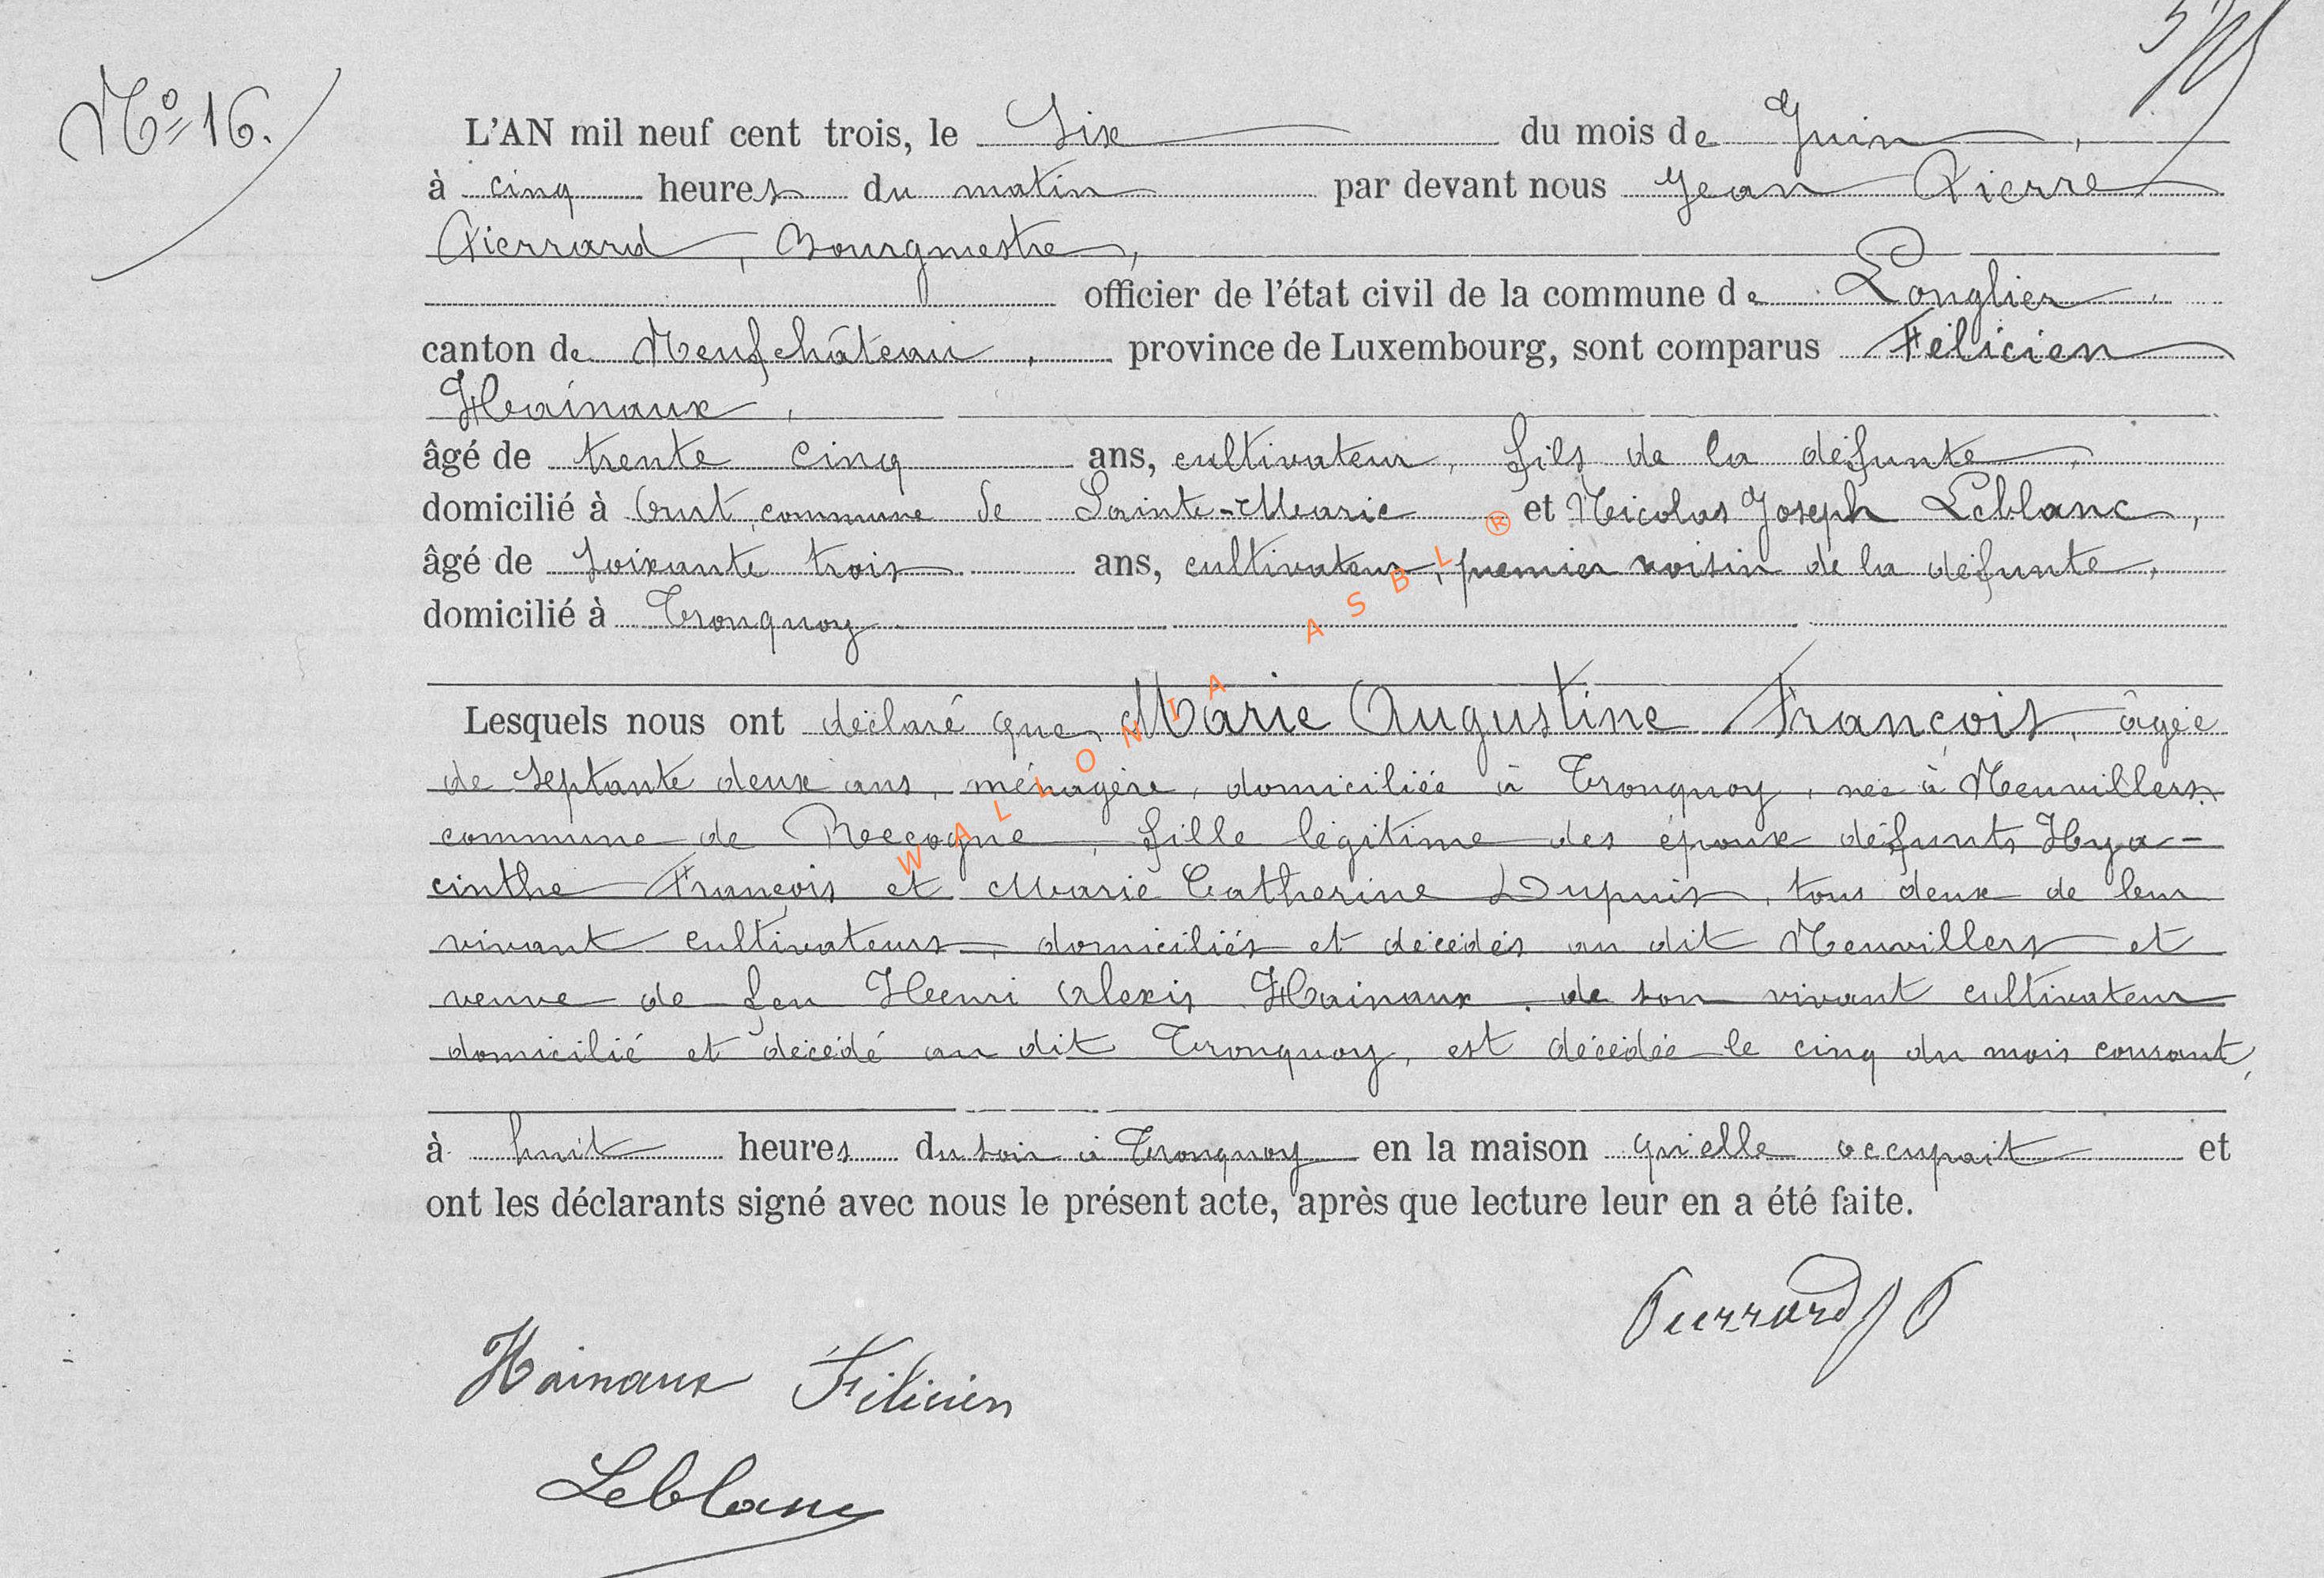 Nº 16.
L'AN mil neuf cent trois, le Six du mois de Juin,
à cinq heures du matin par devant nous Jean Pierre
Pierrard, Bourgmestre,
officier de l'état civil de la commune de Longlier.
canton de Neufchâteau, province de Luxembourg, sont comparus Félicien
Hainaux,
âgé de trente cinq ans, cultivateur, fils de la défunte,
domicilié à Orut, commune de Sainte-Marie et Nicolas Joseph Leblanc,
âgé de soixante trois ans, cultivateur, premier voisin de la défunte,
domicilié à Tronquoy.
Lesquels nous ont déclaré que Marie Augustine François, âgée
de septante deux ans, ménagère, domiciliée à Tronquoy, née à Neuvillers,
commune de Recogne, fille légitime des époux défunts Hya-
cinthe François et Marie Catherine Dupuis, tous deux de leur
vivant cultivateurs, domiciliés et décédés au dit Neuvillers et
veuve de feu Henri Alexis Hainaux. de son vivant cultivateur
domicilié et décédé au dit Tronquoy, est décédée le cinq du mois courant,
à huit heures du soir à Tronquoy en la maison qu'elle occupait et
ont les déclarants signé avec nous le présent acte, après que lecture leur en a été faite.
Pierrard J P
Hainaux Félicien
Leblanc
WALLONIA ASBL ®